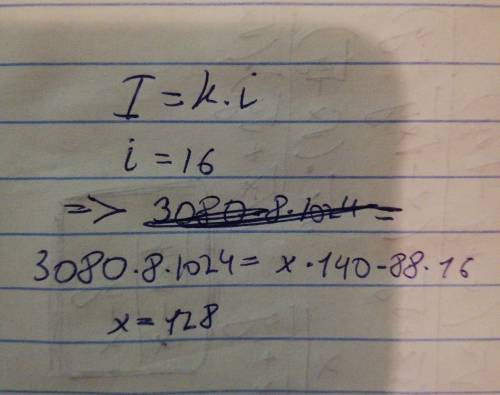 I = k.i
i = 16
=> 3080 · 8 · 1024 =
3080 · 8 · 1024 = x · 140 - 88 · 16
x = 128